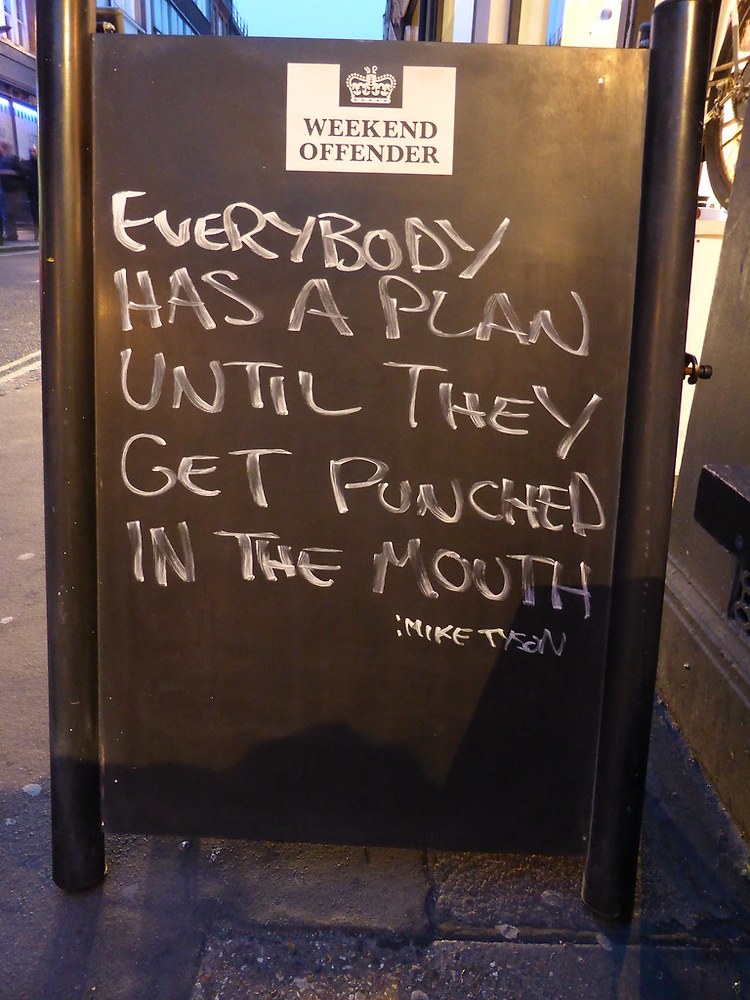 WEEKEND
OFFENDER
EVERYBODY
HAS A PLAN
UNTIL THEY
GET PUNCHED
IN THE MOUTH
:MIKE TYSON